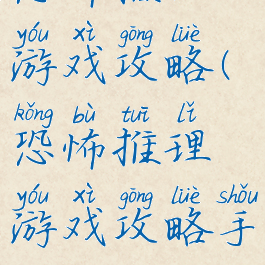 yóu xì gōng lüè
游戏攻略(
kǒng bù tuī lǐ
恐怖推理
yóu xì gōng lüè shǒu
游戏攻略手